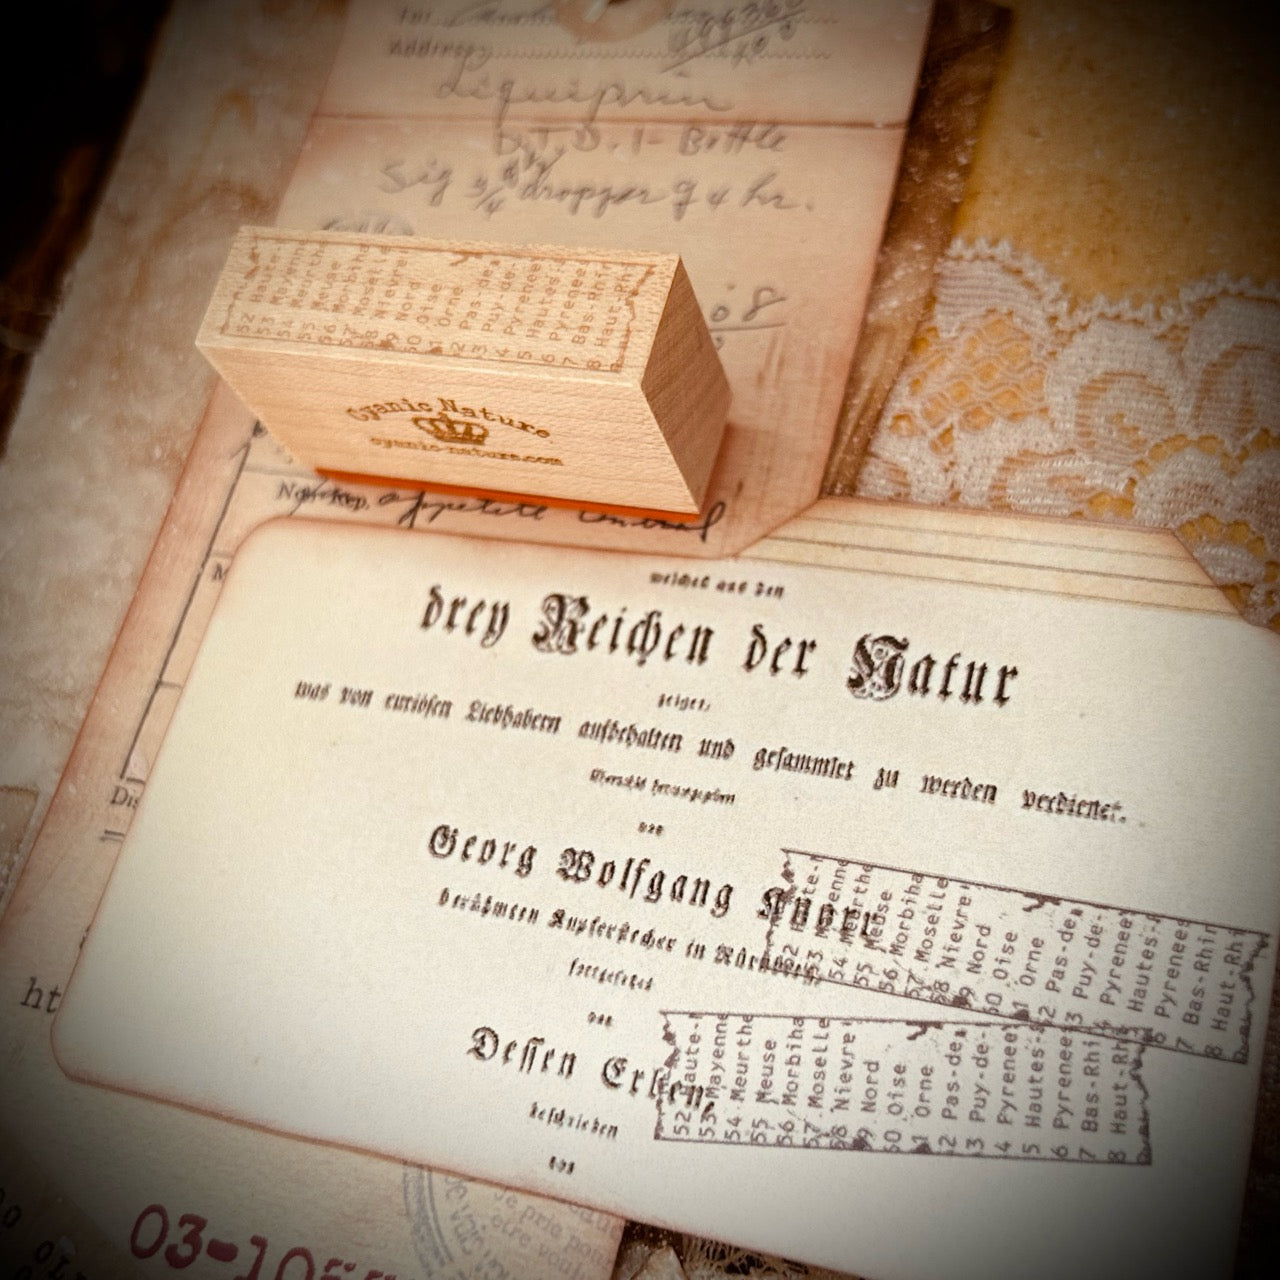 Address
Liquiprin
D.T.D. 1-Bottle
Sig 3/4 dropper q 4 hr.
52 Haute-
53 Mayenn
54 Meurth
55 Meuse
56 Morbiha
57 Moselle
58 Nievre
59 Nord
60 Oise
61 Orne
62 Pas-de
3 Puy-de-
4 Pyrenee
5 Hautes-
6 Pyrenee
7 Bas-Rhin
8 Haut-Rhi
Cyanic Nature
cyanic-nature.com
No. Rep. appetite control
welches aus den
drey Reichen der Natur
zeiget,
was von curiösen Liebhabern aufbehalten und gesammlet zu werden verdienet.
Georg Wolfgang
berühmten Kupferstecher in
fortgesetzet
von
Dessen Erben,
beschrieben
von
52 Haute-
53 Mayenne
54 Meurthe
55 Meuse
56 Morbiha
57 Moselle
58 Nievre
59 Nord
60 Oise
61 Orne
2 Pas-de
3 Puy-de-
4 Pyrenee
Hautes-
6 Pyrenees
7 Bas-Rhin
8 Haut-Rhi
52 Haute-
53 Mayenne
54 Meurthe
55 Meuse
56 Morbiha
57 Moselle
58 Nievre
59 Nord
60 Oise
61 Orne
2 Pas-de
3 Puy-de-
4 Pyrenee
5 Hautes-
6 Pyrenee
7 Bas-Rhi
8 Haut-Rh
ht
03-105